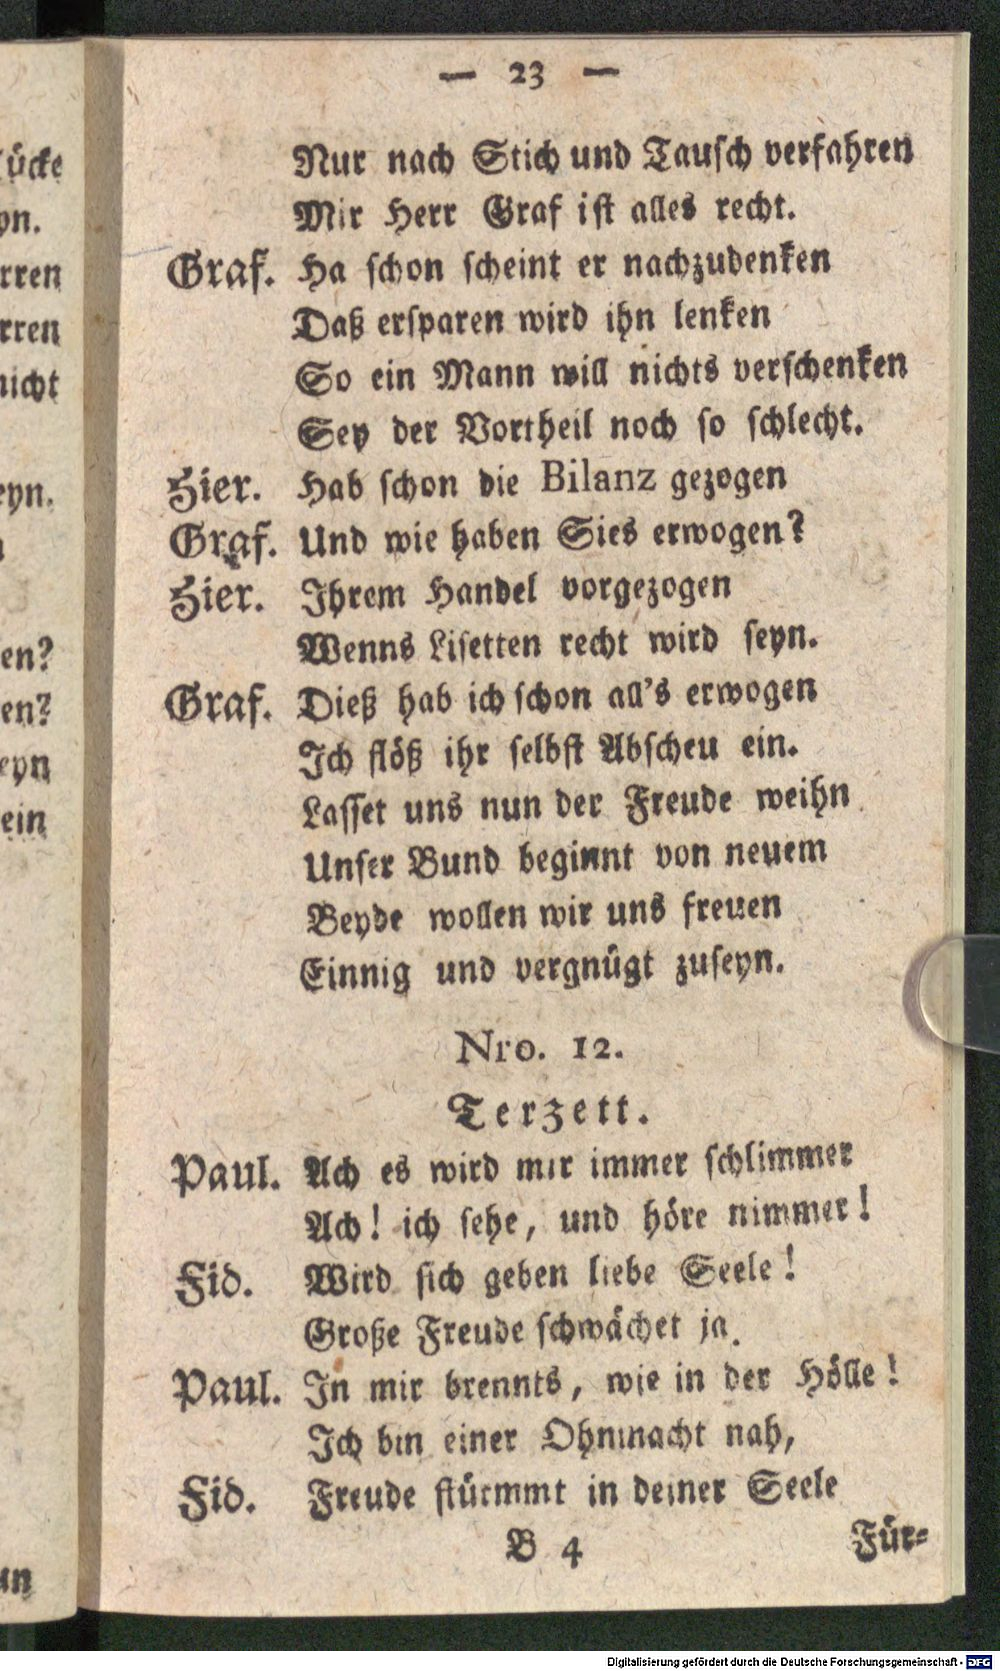 — 23 —
Nur nach Stich und Tausch verfahren
Mir Herr Graf ist alles recht.
Graf. Ha schon scheint er nachzudenken
Daß ersparen wird ihn lenken
So ein Mann will nichts verschenken
Sey der Vortheil noch so schlecht.
Hier. Hab schon die Bilanz gezogen
Graf. Und wie haben Sies erwogen?
Hier. Ihrem Handel vorgezogen
Wenns Lisetten recht wird seyn.
Graf. Dieß hab ich schon all's erwogen
Ich flöß ihr selbst Abscheu ein.
Lasset uns nun der Freude weihn
Unser Bund beginnt von neuem
Beyde wollen wir uns freuen
Einnig und vergnügt zuseyn.
Nro. 12.
Terzett.
Paul. Ach es wird mir immer schlimmer
Ach! ich sehe, und höre nimmer!
Fid. Wird sich geben liebe Seele!
Große Freude schwächet ja.
Paul. In mir brennts, wie in der Hölle!
Ich bin einer Ohnmacht nah,
Fid. Freude stürmmt in deiner Seele
B 4 Für-
ücke
yn.
rren
rren
nicht
eyn.
en?
en?
eyn
ein
un
Digitalisierung gefördert durch die Deutsche Forschungsgemeinschaft - DFG